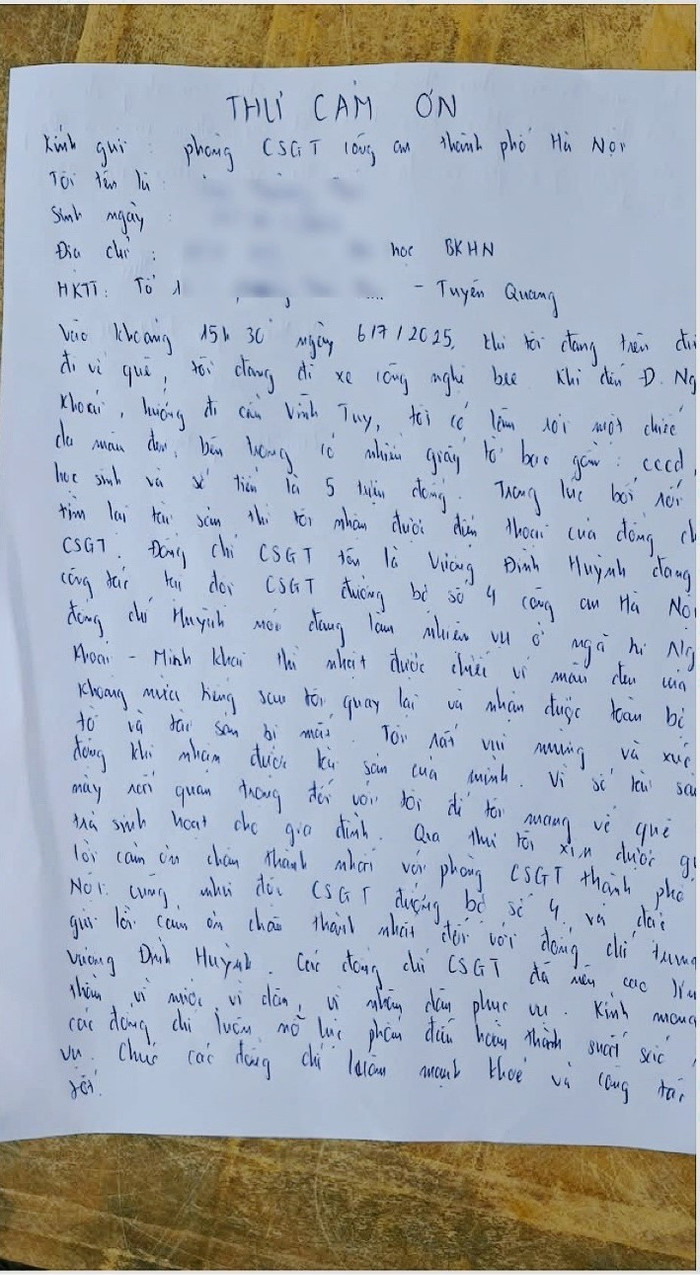 THƯ CẢM ƠN
Kính gửi : phòng CSGT công an thành phố Hà Nội
Tôi tên là :
Sinh ngày :
Địa chỉ : học BKHN
HKTT: Tổ 1 - Tuyên Quang
Vào khoảng 15h 30 ngày 6/7/2025, khi tôi đang trên đư
đi về quê, tôi đang đi xe công nghệ bee. Khi đến Đ. Ng
Khoái, hướng đi cầu Vĩnh Tuy, tôi có làm rơi một chiếc
da màu đen, bên trong có nhiều giấy tờ bao gồm: cccd,
học sinh và số tiền là 5 triệu đồng. Trong lúc bối rối
tìm lại tài sản thì tôi nhận được điện thoại của đồng ch
CSGT. Đồng chí CSGT tên là Vương Đình Huỳnh đang
công tác tại đội CSGT đường bộ số 4 công an Hà Nội
đồng chí Huỳnh nói đang làm nhiệm vụ ở ngã tư Ng
Khoái - Minh khai thì nhặt được chiếc ví màu đen của
Khoảng nửa tiếng sau tôi quay lại và nhận được toàn bộ
tờ và tài sản bị mất. Tôi rất vui mừng và xúc
động khi nhận được tài sản của mình. Vì số tài sản
này rất quan trọng đối với tôi để tôi mang về quê
trả sinh hoạt cho gia đình. Qua thư tôi xin được gử
lời cảm ơn chân thành nhất với phòng CSGT thành phố
Nội cũng như đội CSGT đường bộ số 4 và đặc
gửi lời cảm ơn chân thành nhất đối với đồng chí trung
Vương Đình Huỳnh. Các đồng chí CSGT đã nêu cao tinh
thần vì nước vì dân, vì nhân dân phục vụ. Kính mong
các đồng chí luôn nỗ lực phấn đấu hoàn thành suất sắc
vụ. Chúc các đồng chí luôn mạnh khoẻ và công tác
tốt.